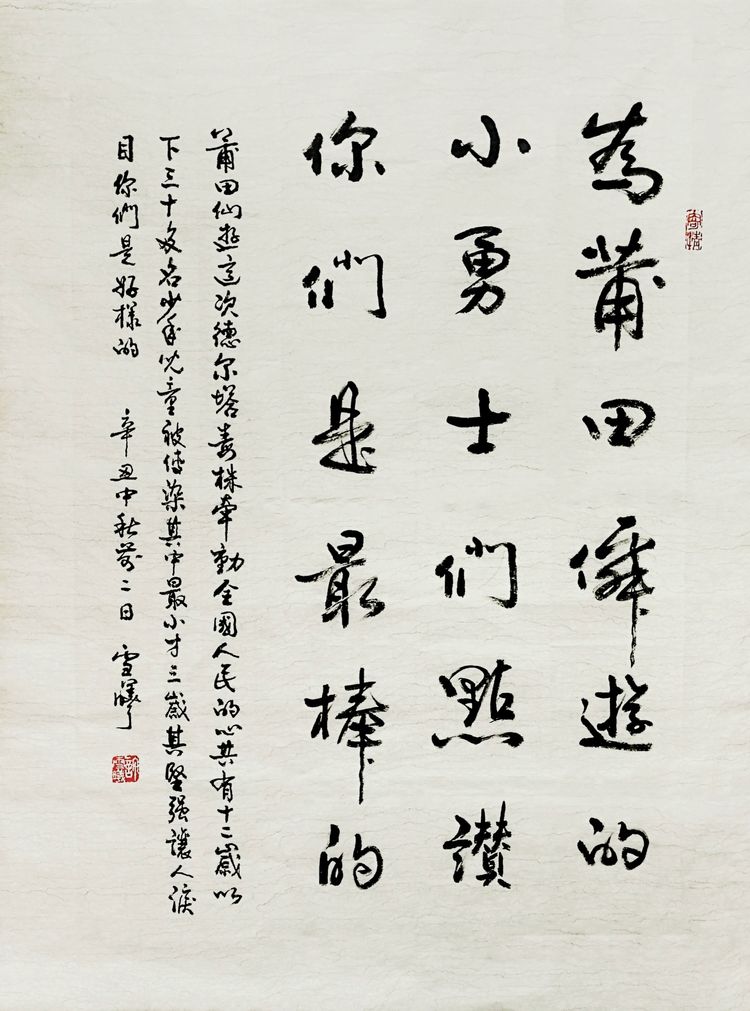 為莆田僊遊的
小勇士們點讚
你們是最棒的
莆田仙遊這次德尔塔毒株牽動全國人民的心共有十二歲以
下三十多名少年児童被传染其中最小才三歲其堅强讓人淚
目你們是好樣的 辛丑中秋前二日 雪曦